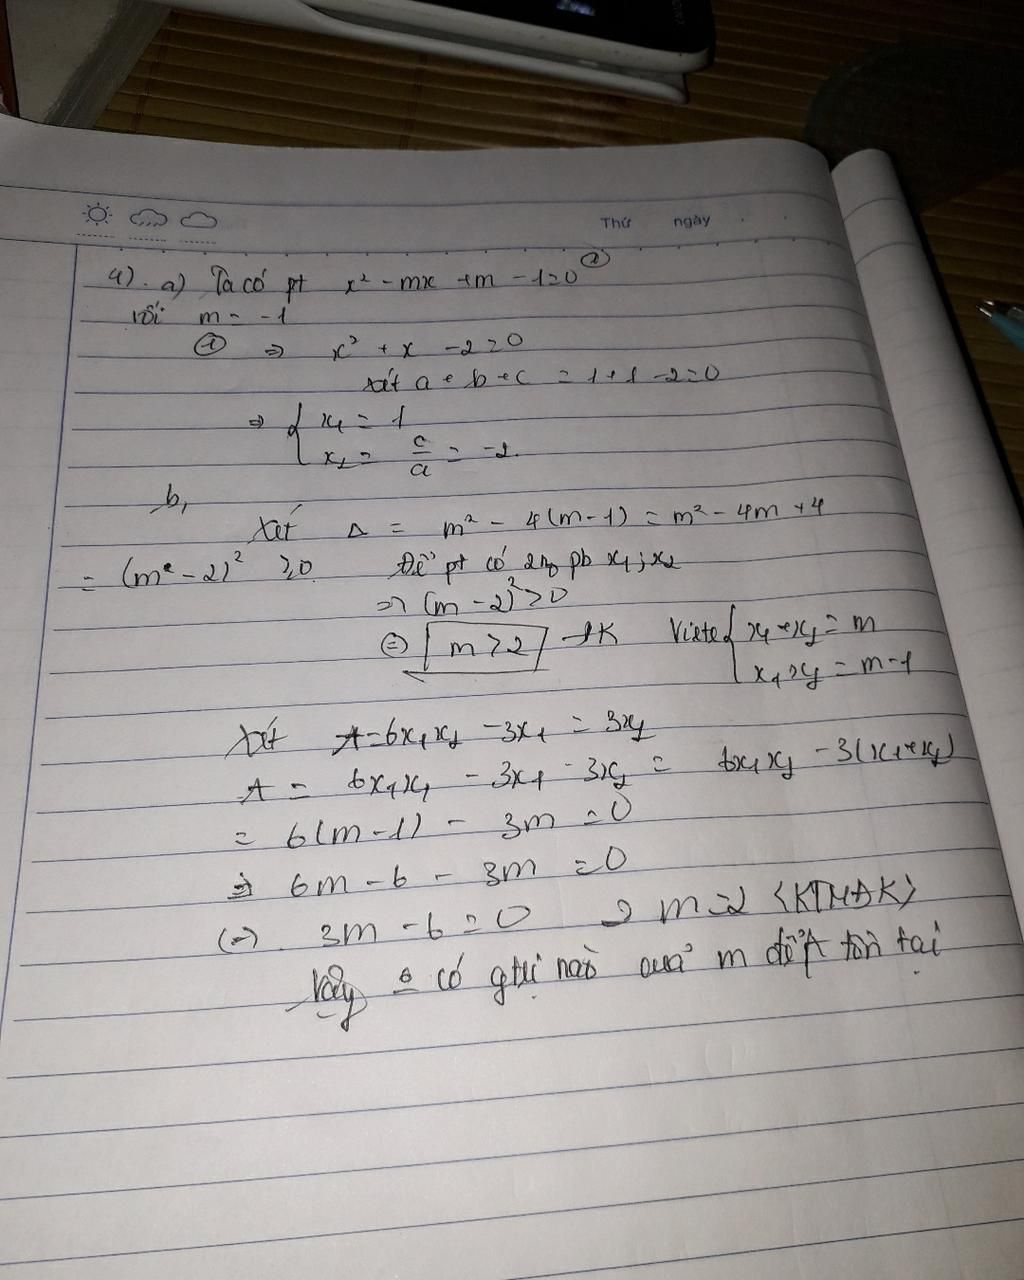 Thứ ngày
4). a) Ta có pt x² - mx + m - 1 = 0 ①
với m = -1
① => x² + x - 2 = 0
Xét a + b + c = 1 + 1 - 2 = 0
=> { x₁ = 1
x₂ = c/a = -2.
b,
Xét Δ = m² - 4(m-1) = m² - 4m + 4
= (m - 2)² ≥ 0 Để pt có 2 no pb x₁ ; x₂
=> (m - 2)² > 0
<=> m > 2 ĐK Viete { x₁ + x₂ = m
x₁ x₂ = m - 1
Xét A = 6x₁x₂ - 3x₁ = 3x₂
A = 6x₁x₂ - 3x₁ - 3x₂ = 6x₁x₂ - 3(x₁ + x₂)
= 6(m - 1) - 3m = 0
=> 6m - 6 - 3m = 0
<=> 3m - 6 = 0 => m = 2 (KTMĐK)
Vậy có gtrị nào của m để A tồn tại